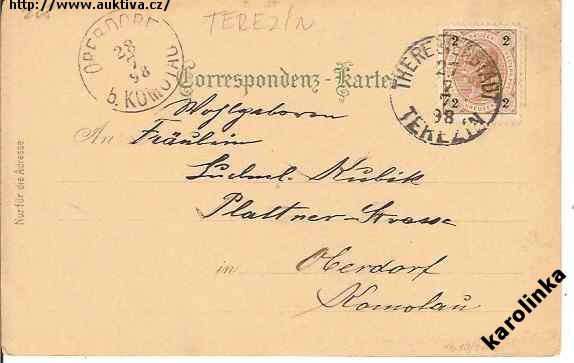 http://www.auktiva.cz/
TEREZÍN
OBERDORF
28
7
98
b. KOMOT
Correspondenz-Karte
THERESIENSTADT
TEREZÍN
98
2 2
2 2
Wohlgeboren
An Fräulein
Ludml. Kubik
Plattner-Strasse
in Oberdorf
Komotau
Nur für die Adresse
karolinka